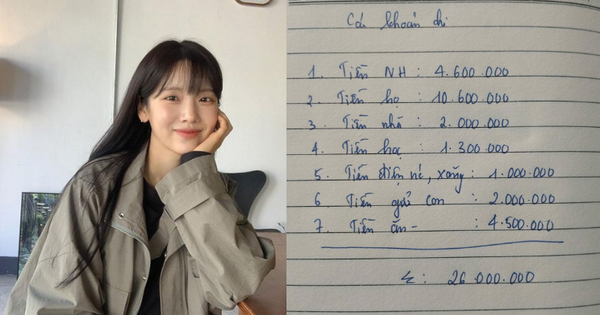 Các khoản chi
1. Tiền NH : 4.600.000
2. Tiền họ : 10.600.000
3. Tiền nhà : 2.000.000
4. Tiền học : 1.300.000
5. Tiền điện nc, xăng : 1.000.000
6. Tiền gửi con : 2.000.000
7. Tiền ăn - : 4.500.000
Σ : 26 000.000